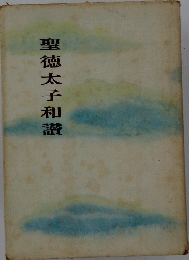 聖徳太子和讃